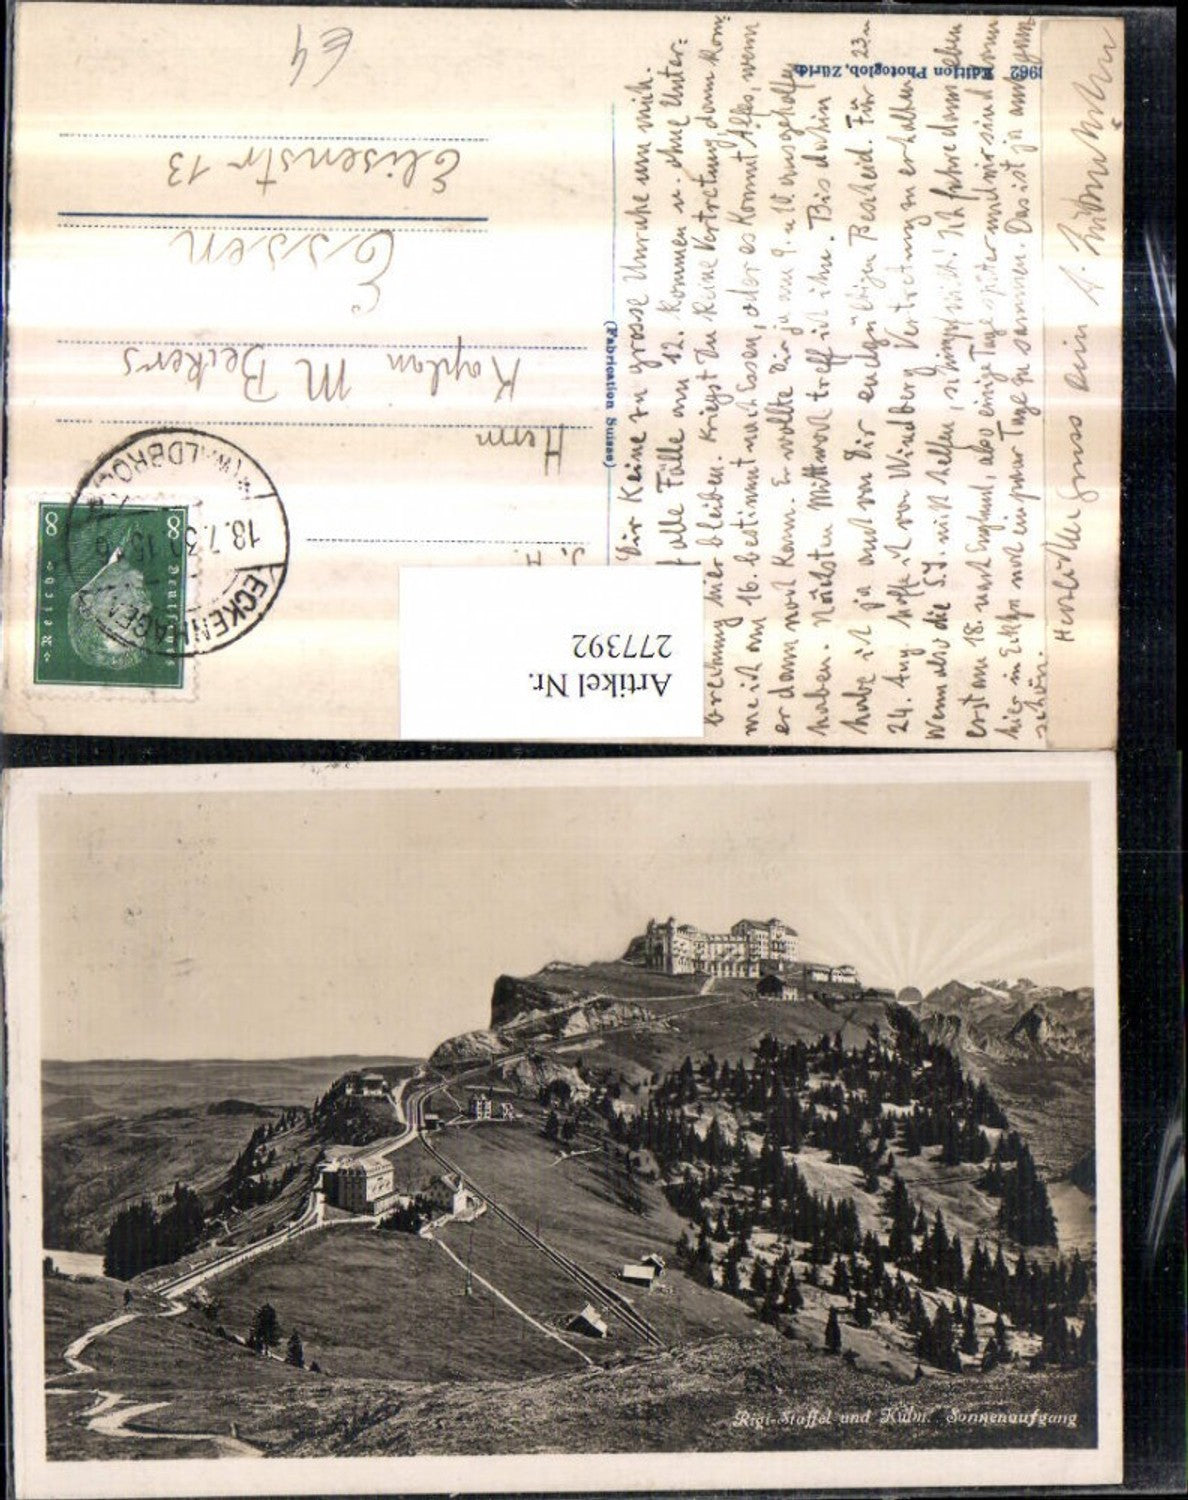 E4
Elisenstr 13
Essen
Kaplan M Beckers
Herrn
(Fabrication Suisse)
3962 Edition Photoglob, Zürich
8 8
Deutsches Reich
ECKENHAGEN
(WALDBRÖL)
18.7.3
Artikel Nr.
277392
Dir keine zu grosse Unruhe um mich.
alle Fälle am 12. kommen u. ohne Unter=
brechung hier bleiben. Kriegst Du keine Vertretung dann kom=
me ich am 16. bestimmt nach Essen, oder es kommt Alfes, wenn
er dann noch kann. Er wollte Dir ja am 9. u. 10. ausgeholfen
haben. Nächsten Mittwoch treff ich ihn. Bis dahin
habe ich ja auch von Dir endgültigen Bescheid. Für 23 u
24. Aug. hoffe ich von Windberg Vertretung zu erhalten.
Wenn also die S.J. nicht helfen, Ich fahre dann eben
erst am 18. nach England, also einige Tage später und wir sind dann
hier in Eckhg noch ein paar Tage zusammen. Das ist ja auch ganz
schön.
Herzlichen Gruss Dein A.
Rigi-Staffel und Kulm. Sonnenaufgang